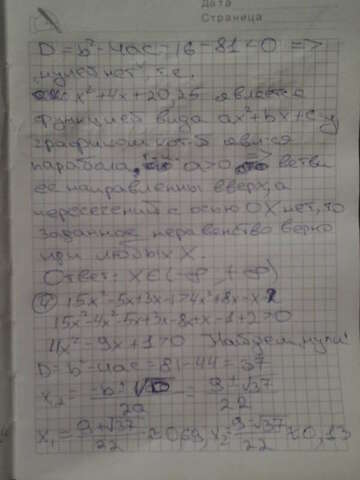 Дата
Страница
D = b² - 4ac = 16 - 81 < 0 =>
нулей нет, т.е.
x² + 4x + 20,25 является
функцией вида ax² + bx + c, у
графиком кот-й явл-ся
парабола, a>0 => ветви
её направлены вверх, а
пересечений с осью OX нет, то
заданное неравенство верно
при любых X.
Ответ: X∈(-∞; +∞)
15x² - 5x + 3x - 1 > 4x² + 8x - x - 2
15x² - 4x² - 5x + 3x - 8x + x - 1 + 2 > 0
4x² - 9x + 1 > 0 Найдем нули:
D = b² - 4ac = 81 - 44 = 37
x₁,₂ = -b ± √D / 2a = 9 ± √37 / 22
x₁ = 9 + √37 / 22 ≈ 0,69, x₂ = 9 - √37 / 22 ≈ 0,13